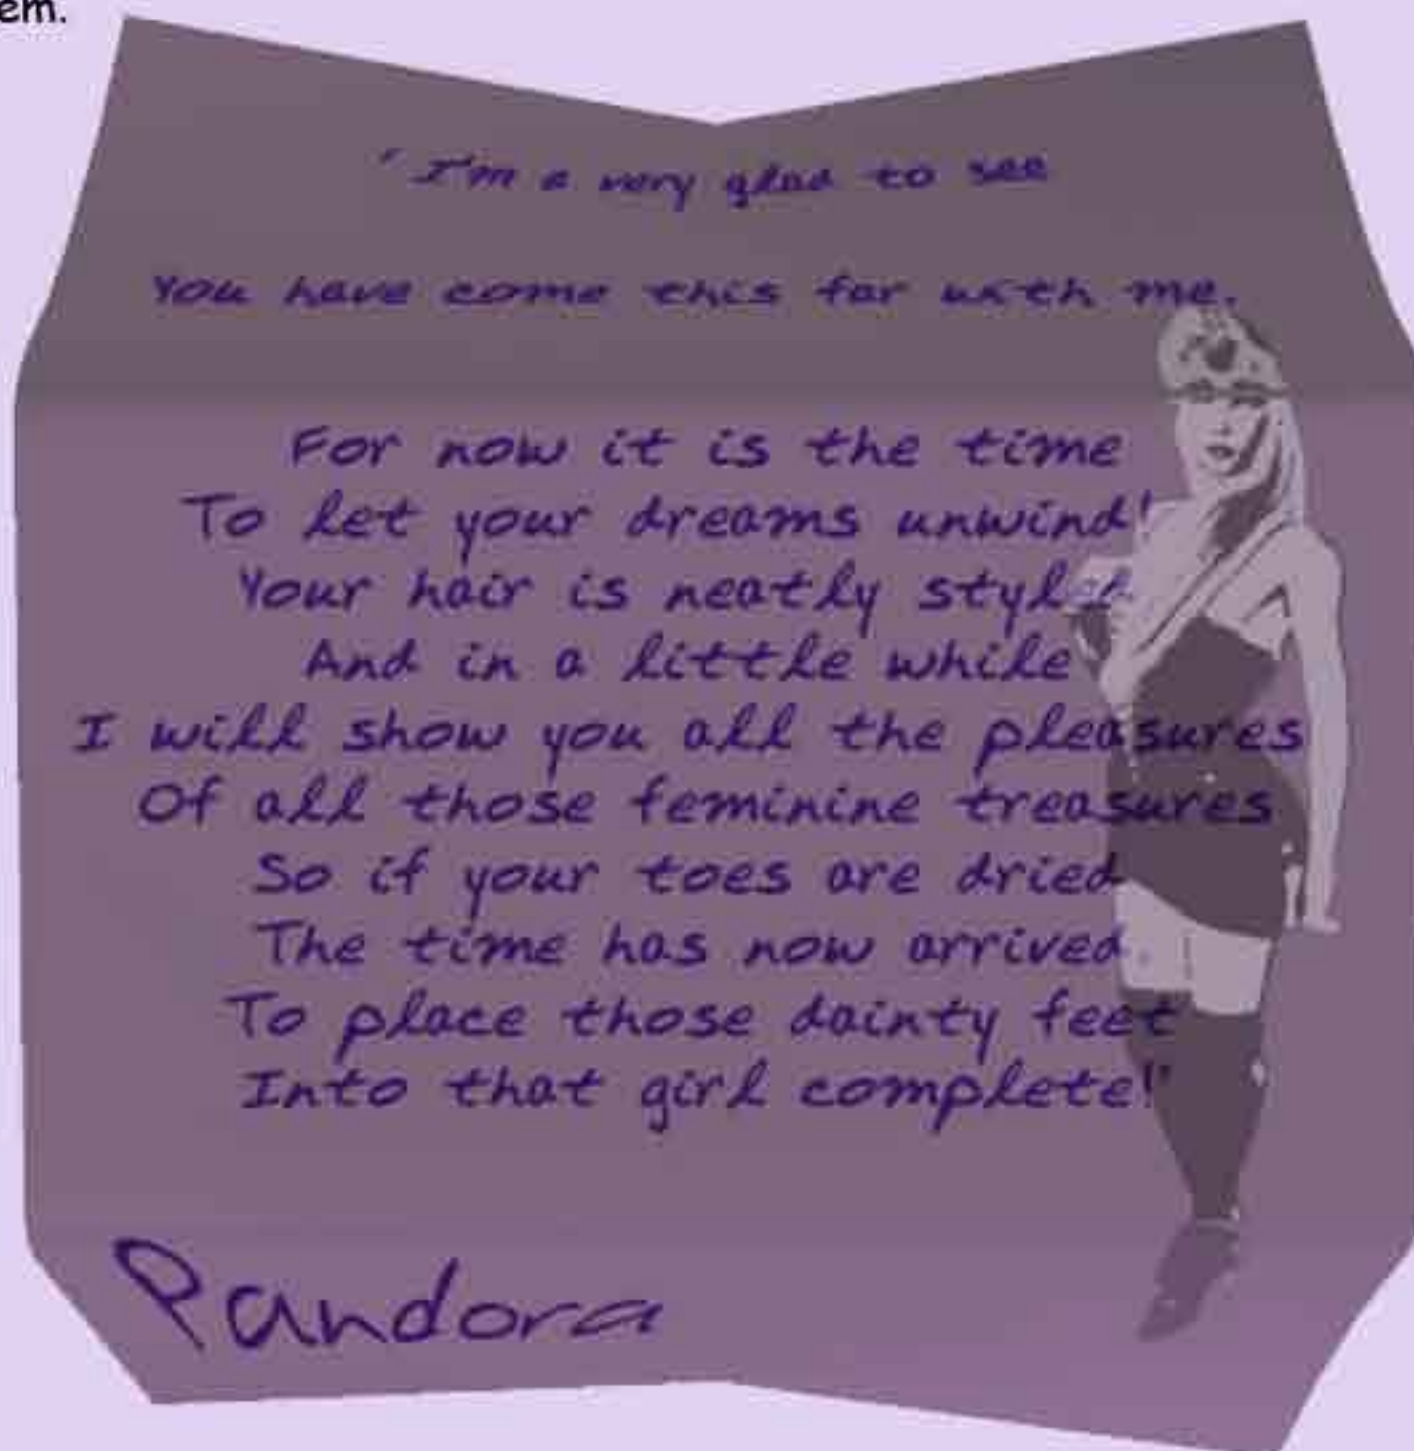 em.
"I'm a very glad to see
You have come this far with me.
For now it is the time
To let your dreams unwind!
Your hair is neatly styled
And in a little while
I will show you all the pleasures
Of all those feminine treasures
So if your toes are dried
The time has now arrived
To place those dainty feet
Into that girl complete!"
Pandora